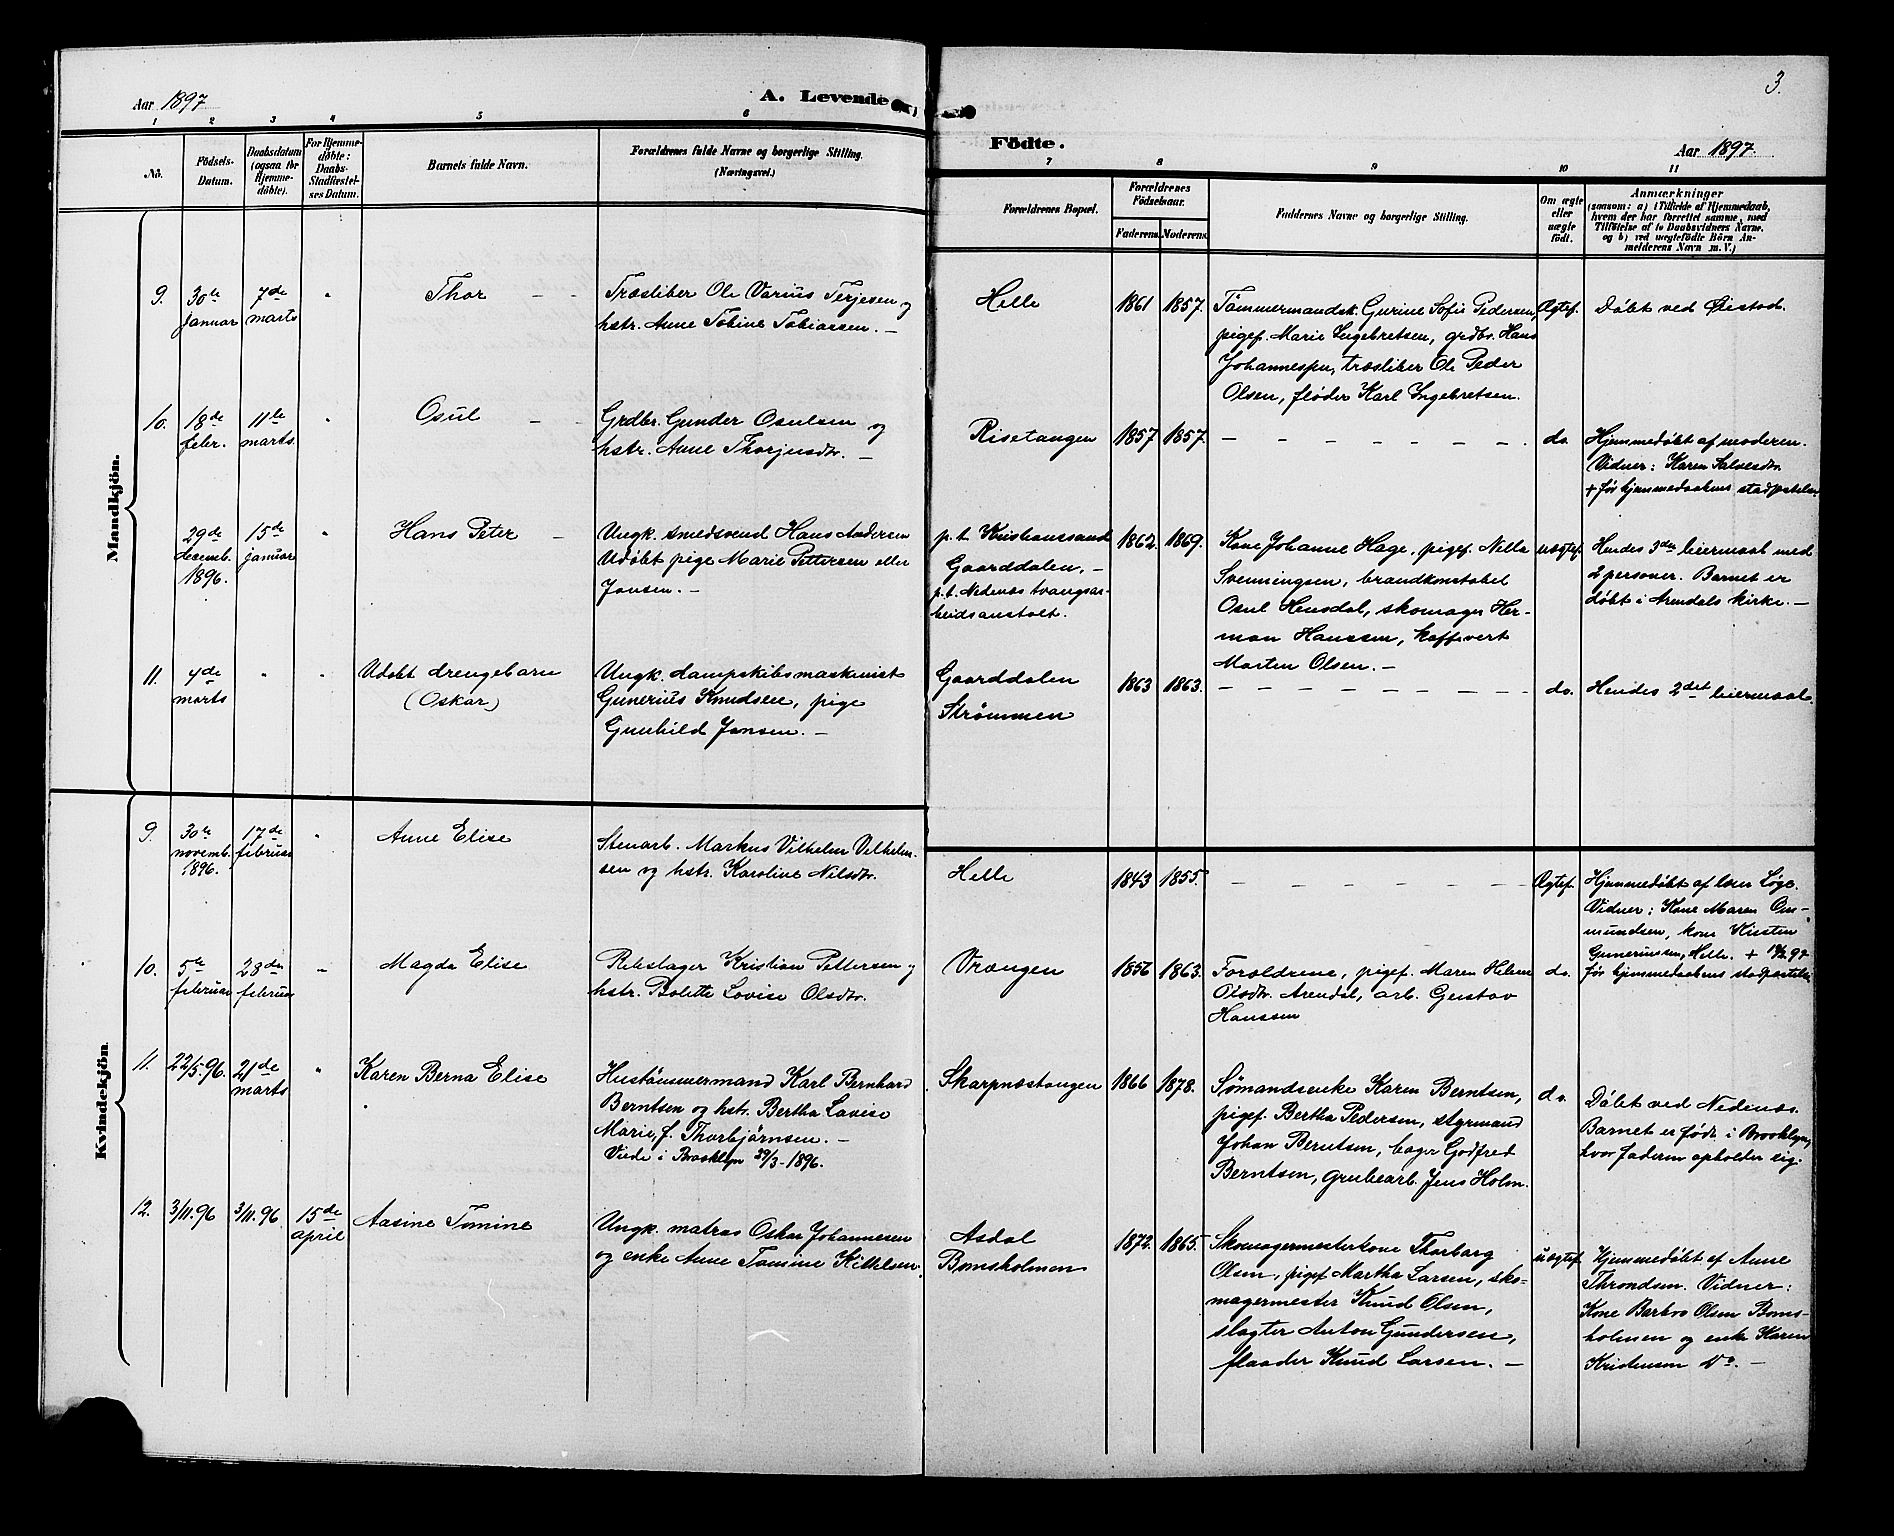 3.
Aar 1897
A. Levende
Födte.
Aar 1897.
1 2 3 4 5 6 7 8 9 10 11
No.
Födsels-
Datum.
Daabsdatum
(ogsaa for
Hjemme-
döbte).
For Hjemme-
döbte:
Daabs-
Stadfæstel-
ses Datum.
Barnets fulde Navn.
Forældrenes fulde Navne og borgerlige Stilling.
(Næringsvei.)
Forældrenes Bopæl.
Forældrenes
Födselsaar.
Faderens. Moderens.
Faddernes Navne og borgerlige Stilling.
Om ægte
eller
uægte
födt.
Anmærkninger
(saasom: a) i Tilfælde af Hjemmedaab,
hvem der har forrettet samme, med
Tilföielse af to Daabsvidners Navne.
og b) ved uægtefödte Börn An-
melderens Navn m. V.)
Mandkjön.
9.
30te
januar
7de
marts
"
Thor
Træsliber Ole Varius Terjesen og
hstr. Anne Tobine Tobiassen. —
Helle
1861 1857.
Tömmermandsk. Gurine Sofie Pedersen,
pigef. Marie Ingebretsen, grdbr. Hans
Johannessen, træsliber Ole Peder
Olsen, fløder Karl Ingebretsen.
Ægtef.
Döbt ved Øiestad.
10.
18de
febr.
11te
marts
"
Osul
Grdbr. Gunder Osulsen og
hstr. Anne Thorjusdtr. —
Risetangen
1857 1857.
— — — — — — — —
do.
Hjemmedöbt af moderen.
Vidner: Karen Salvesdtr.
+ før hjemmedaabens stadfæstelse
29de
decemb.
1896.
15de
januar
"
Hans Peter
Ungk. smedsvend Hans Andersen
Udöbt pige Marie Pettersen eller
Jansen. —
p.t. Kristianssand
Gaarddalen, —
p.t. Nedenæs tvangsar-
beidsanstalt.
1862. 1869.
Kone Johanne Hage, pigef. Nella
Svenningsen, brandkonstabel
Osul Heusdal, skomager Her-
man Hanssen, kaffevert
Morten Olsen. —
uægtef.
Hendes 3die leiermaal med
2 personer. Barnet er
döbt i Arendals kirke. —
11.
4de
marts
" "
Udöbt drengebarn
(Oskar)
Ungk. dampskibsmaskinist
Gunerius Knudsen, pige
Gunhild Jansen. —
Gaarddalen
Strømmen
1863 1863.
— — — — — — — —
do.
Hendes 2det leiermaal.
Kvindekjön
9.
30te
novemb.
1896.
17de
februar
"
Anne Elise
Stenarb. Markus Vilhelm Vilhelm-
sen og hstr. Karoline Nilsdtr.
Helle
1843 1855.
— — — — — — — —
Ægtef.
Hjemmedöbt af Løge.
Vidner: Kone Maren Om-
mundsen, kone Kirsten
Gunerussen, Helle. +
før hjemmedaabens stadfæstelse
10.
5te
februar
28de
februar
"
Magda Elise
Rebslager Kristian Pettersen og
hstr. Bolette Lovise Olsdtr.
Vrængen
1856 1863.
Forældrene, pigef. Maren Helene
Olsdtr. Arendal, arb. Gustav
Hanssen
do.
11.
22/5.96.
21de
marts
"
Karen Berna Elise
Hustömmermand Karl Bernhard
Berntsen og hstr. Bertha Lovise
Marie, f. Thorbjørnsen. —
Viede i Brooklyn 29/3-1896.
Skarpnæstangen
1866 1878.
Sømandsenke Karen Berntsen,
pigef. Bertha Pedersen, styrmand
Johan Berntsen, bager Godfred
Berntsen, grubearb. Jens Holm.
do.
Döbt ved Nedenæs.
Barnet er født i Brooklyn,
hvor faderen opholder sig.
12.
3/11.96
3/11.96
15de
april
Aasine Tomine
Ungk. matros Oskar Johannesen
og enke Anne Tomine Kittelsen.
Asdal
Bomsholmen
1872. 1865.
Skomagermesterkone Thorborg
Olsen, pigef. Martha Larsen, sko-
magermester Knud Olsen,
slagter Anton Gundersen,
flaader Knud Larsen. —
uægtef.
Hjemmedöbt af Anne
Throndsen. Vidner:
Kone Barbro Olsen Boms-
holmen og enke Karen
Kristensen Do. —